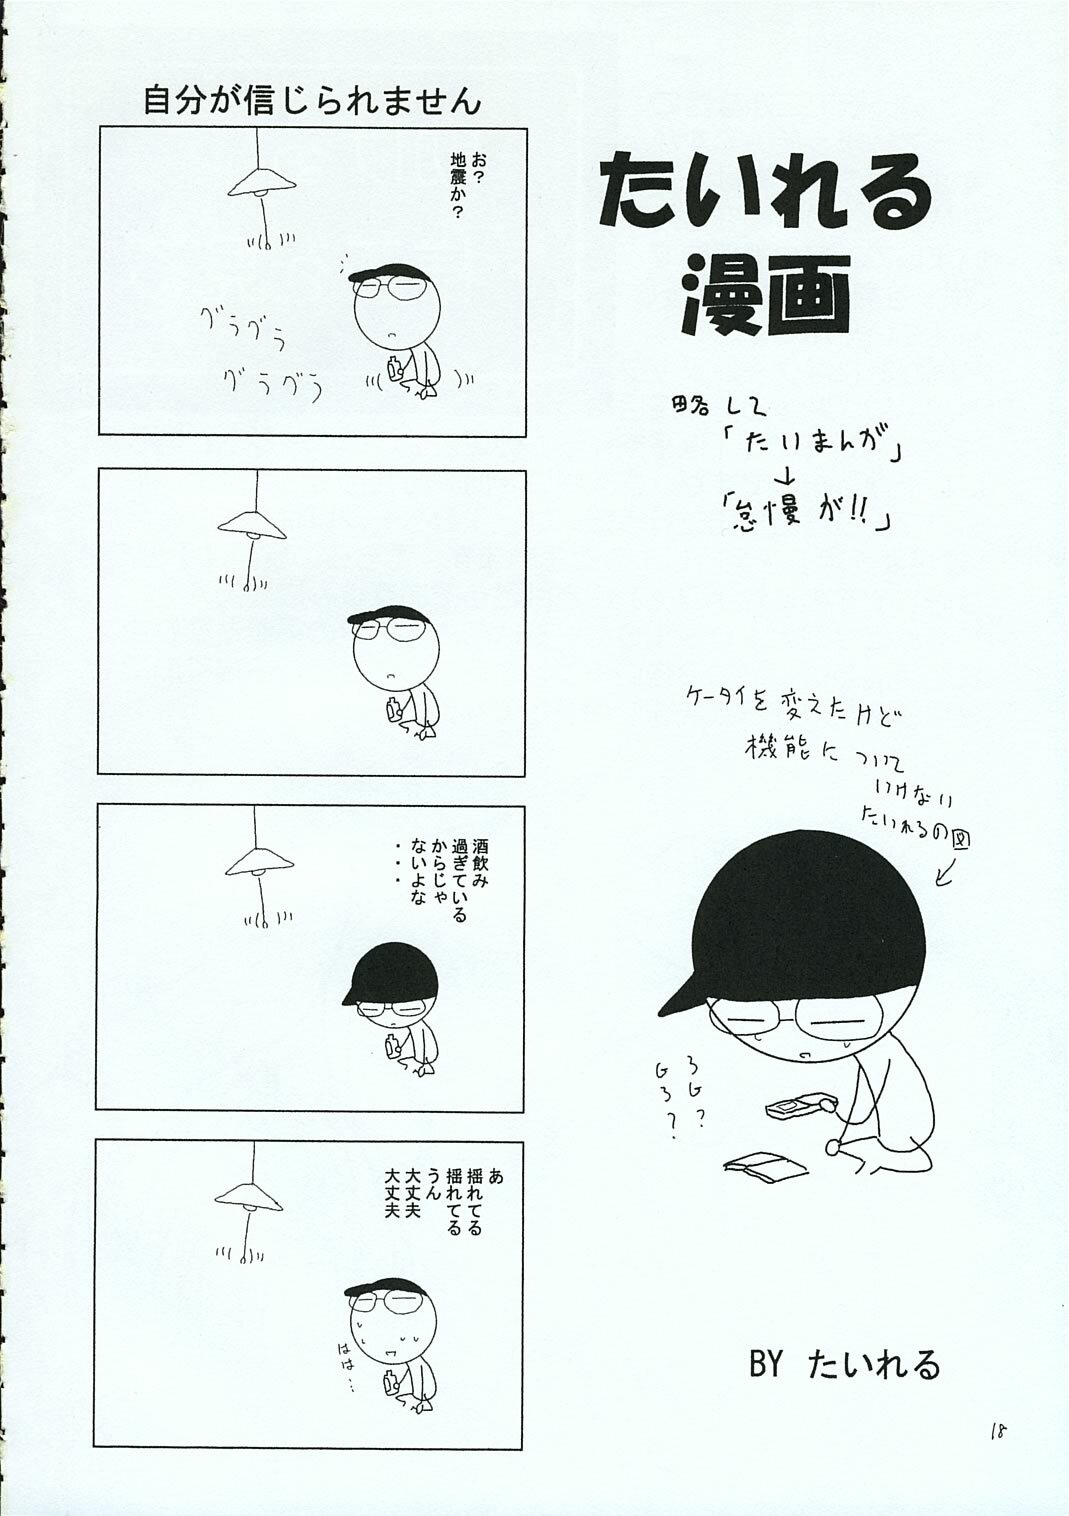 たいれる
漫画
略して
「たいまんが」
↓
「怠慢が!!」
ケータイを変えたけど
機能について
いけない
たいれるの図
BY たいれる
18
自分が信じられません
お?
地震か?
グラグラ
グラグラ
酒飲み
過ぎている
からじゃ
ないよな
・・・
あ
揺れてる
揺れてる
うん
大丈夫
大丈夫
はは…